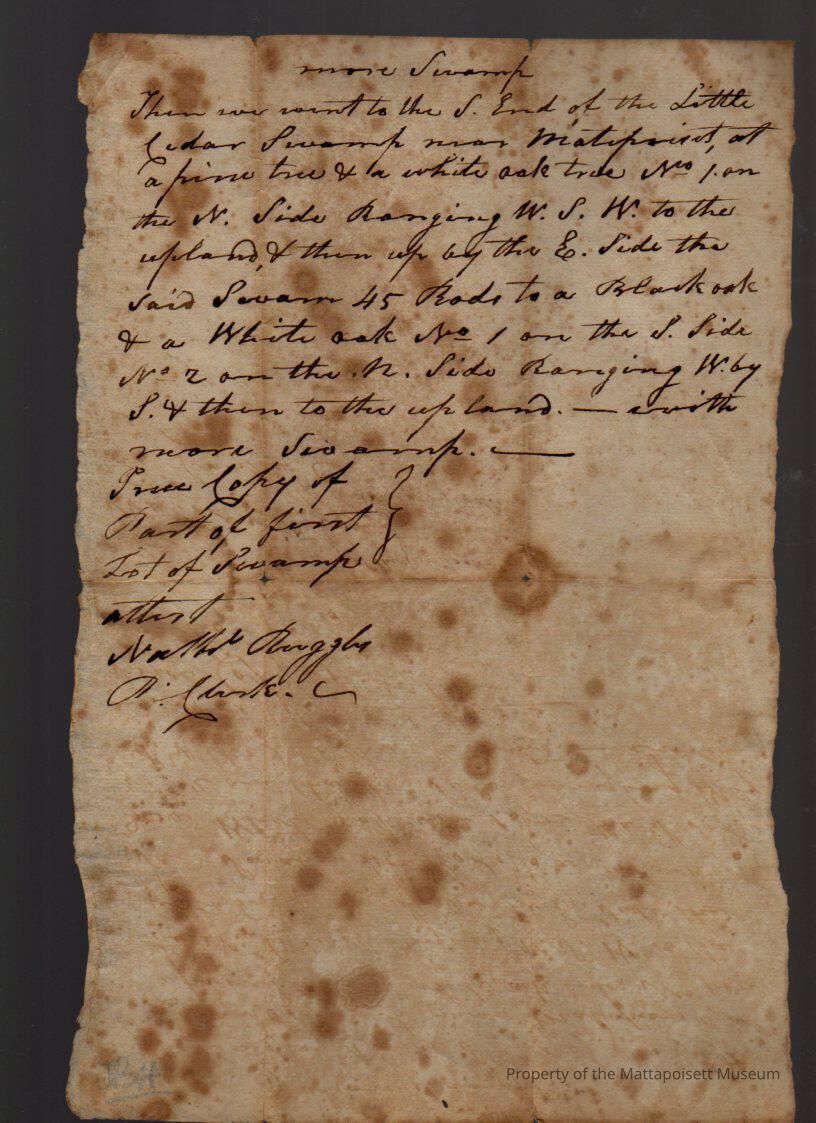 more Swamp
Then we went to the S. End of the Little
Cedar Swamp near Matepoiset, at
a pine tree & a white oak tree No 1. on
the N. Side Ranging W. S. W. to the
upland, & then up by the E. Side the
Said Swam 45 Rods to a Black oak
& a White oak No 1 on the S. Side
No 2 on the N. Side Ranging W. by
S. & then to the upland. — with
more Swamp. —
True Copy of
Part of first
Lot of Swamp
attest
Nathl Ruggles
P. Clerk.
Property of the Mattapoisett Museum